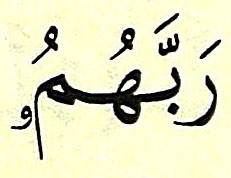 رَبَّهُمُۥ